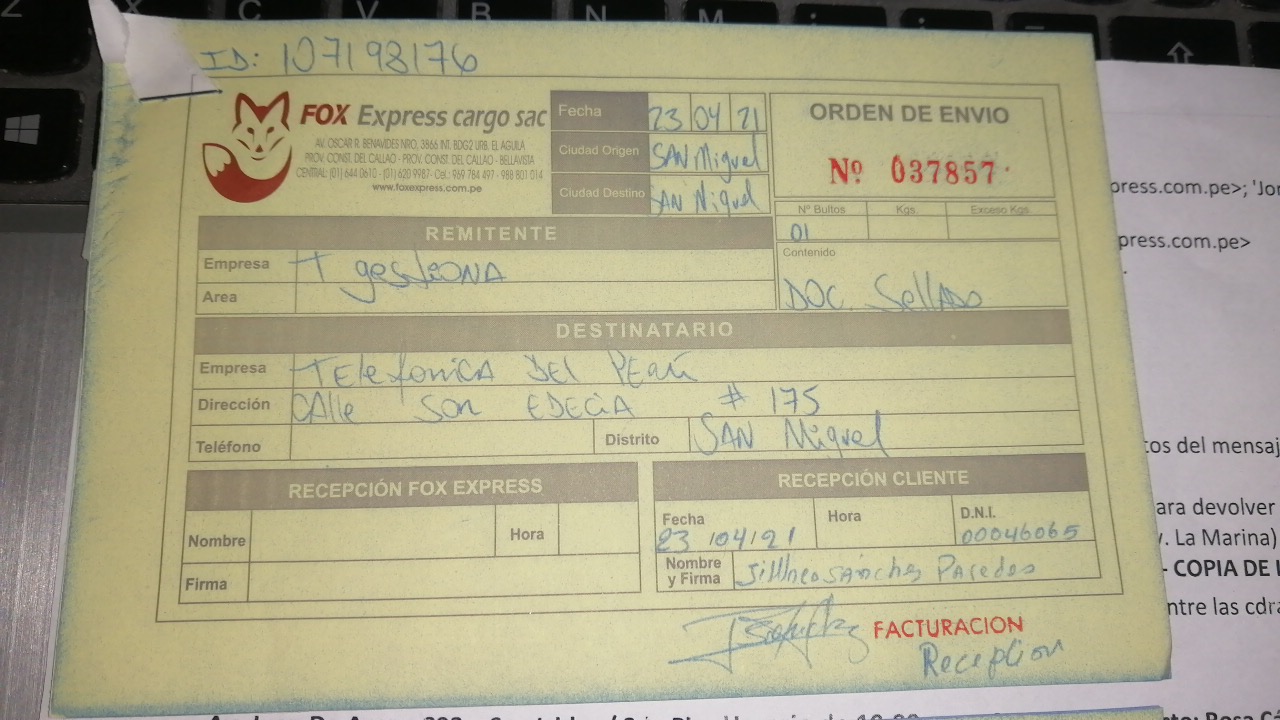 Z X C V B N M
ID: 107198176
FOX Express cargo sac
AV. OSCAR R. BENAVIDES NRO. 3866 INT. BDG2 URB. EL AGUILA
PROV. CONST. DEL CALLAO - PROV. CONST. DEL CALLAO - BELLAVISTA
CENTRAL: (01) 644 0610 - (01) 620 9987 - Cel.: 969 784 497 - 988 801 014
www.foxexpress.com.pe
Fecha 23 04 21
Ciudad Origen SAN Miguel
Ciudad Destino SAN Miguel
ORDEN DE ENVIO
Nº 037857
Nº Bultos Kgs. Exceso Kgs.
01
Contenido
DOC. Sellado
REMITENTE
Empresa T gestiona
Area
DESTINATARIO
Empresa Telefonica DEL PERÚ
Dirección Calle SON EDECIA # 175
Teléfono Distrito SAN Miguel
RECEPCIÓN FOX EXPRESS
Nombre Hora
Firma
RECEPCIÓN CLIENTE
Fecha Hora D.N.I.
23/04/21 00046065
Nombre
y Firma Sánches Paredes
FACTURACION
Reception
press.com.pe>; 'Jor
press.com.pe>
tos del mensaj
ara devolver
. La Marina)
- COPIA DE
ntre las cdra